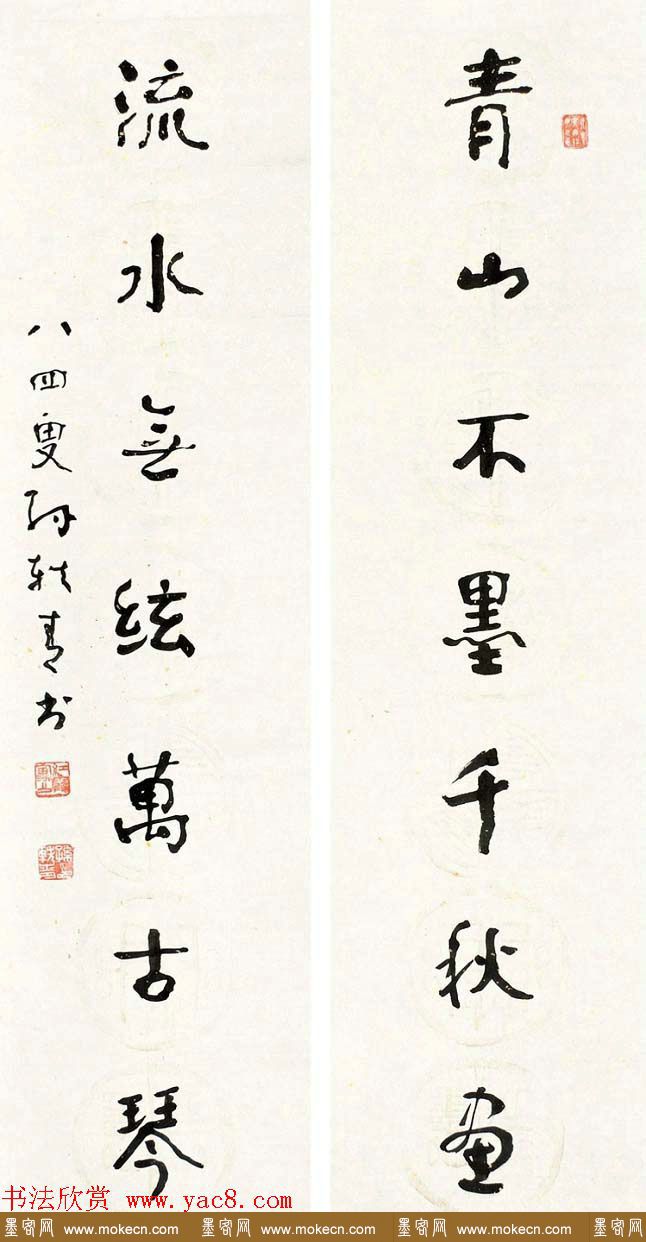 青山不墨千秋画
流水無絃萬古琴
八四叟孙轶青书
书法欣赏 www.yac8.com
墨客网 www.mokecn.com 墨客网 www.mokecn.com 墨客网 www.mokecn.com